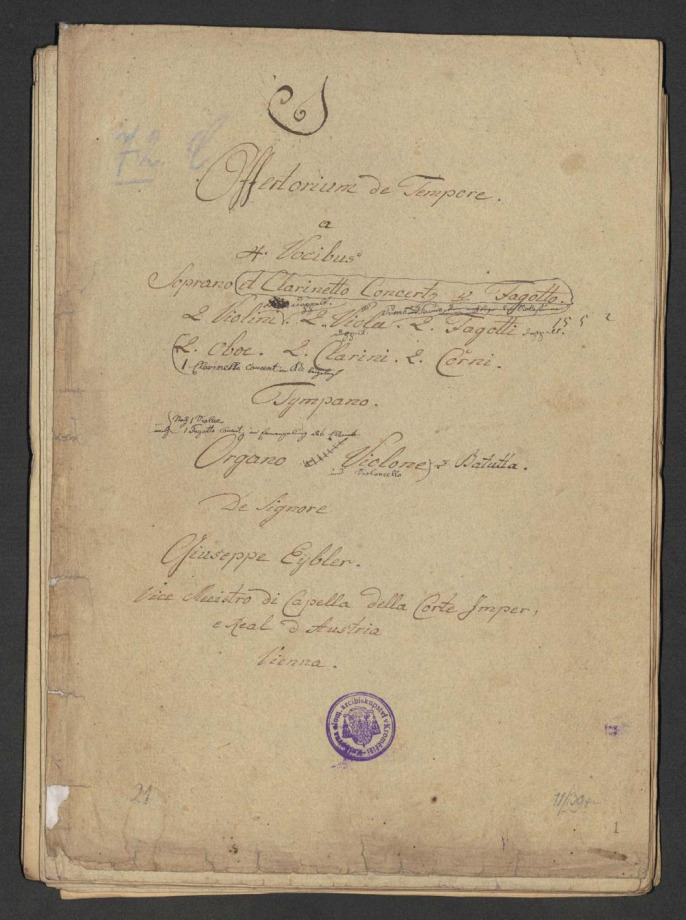 Offertorium de Tempore.
a
4. Vocibus
Soprano et Clarinetto Concert; Fagotto.
2 Violini. 2. Viola. 2. Fagotti
2. Oboe. 2. Clarini. 2. Corni.
1 Clarinetto concert
Tympano.
1 Fagotto
Organo Violone Batutta.
Violoncello
De Signore
Giuseppe Eybler.
Vice Meistro di Capella della Corte Imper,
e Real d'Austria
Vienna.
arcibiskupství v Kroměříži
21
1